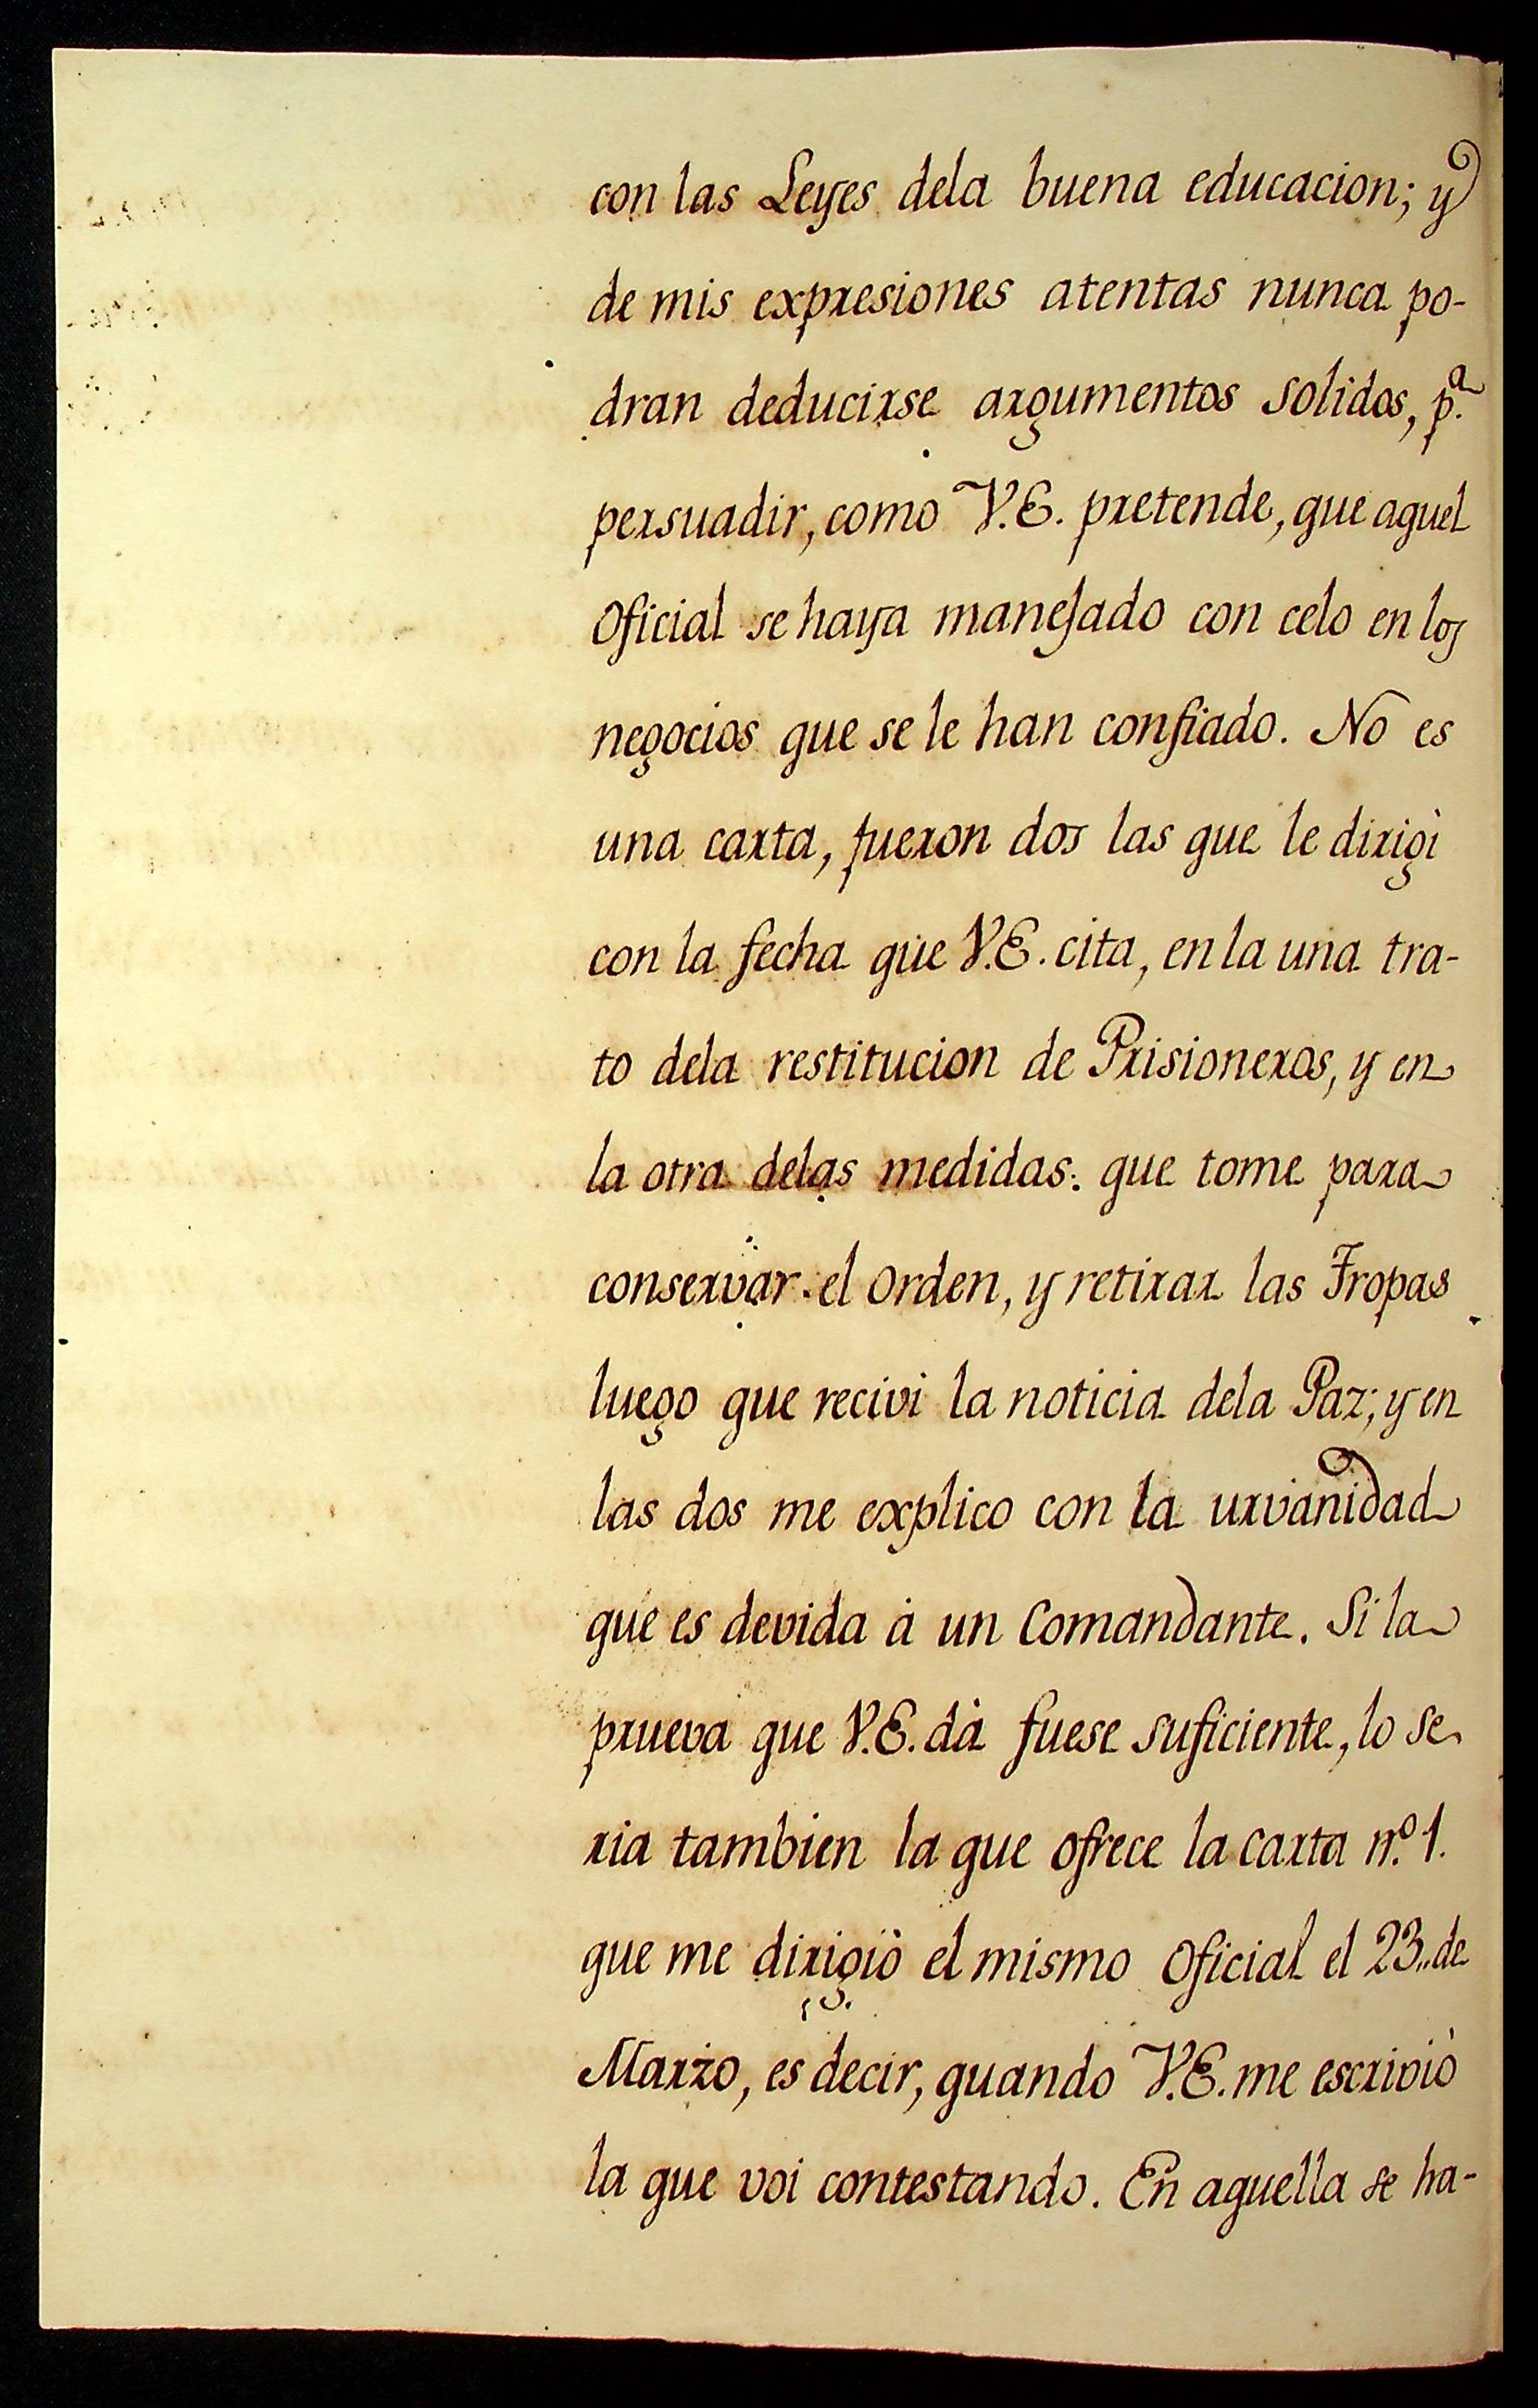 con las Leyes dela buena educacion; y
de mis expresiones atentas nunca po-
dran deducirse argumentos solidos, p.ª
persuadir, como V.E. pretende, que aquel
Oficial se haya manejado con celo en los
negocios que se le han confiado. No es
una carta, fueron dos las que le dirigì
con la fecha que V.E. cita, en la una tra-
to dela restitucion de Prisioneros, y en
la otra delas medidas. que tome para
conservar el orden, y retirar las Tropas
luego que recivi la noticia dela Paz; y en
las dos me explico con la urvanidad
que es devida à un Comandante. Si la
prueva que V.E. dà fuese suficiente, lo se
ria tambien la que ofrece la carta n.º 1.
que me dirigiò el mismo Oficial el 23,, de
Marzo, es decir, quando V.E. me escriviò
la que voi contestando. En aquella se ha-